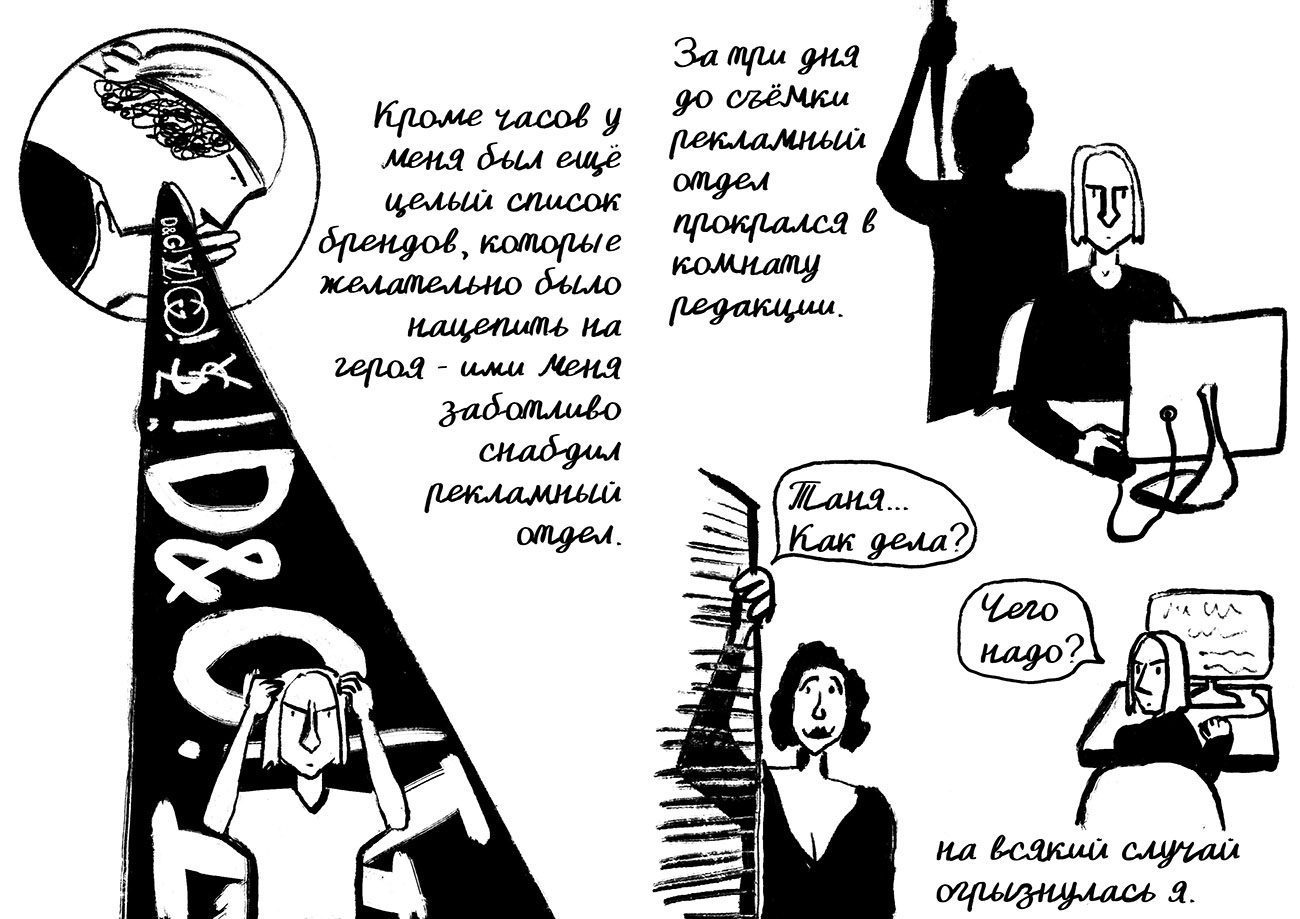 Кроме часов у
меня был ещё
целый список
брендов, которые
желательно было
нацепить на
героя - ими меня
заботливо
снабдил
рекламный
отдел.
D&G!
D&G
За три дня
до съёмки
рекламный
отдел
прокрался в
комнату
редакции.
Таня...
Как дела?
Чего
надо?
на всякий случай
огрызнулась я.